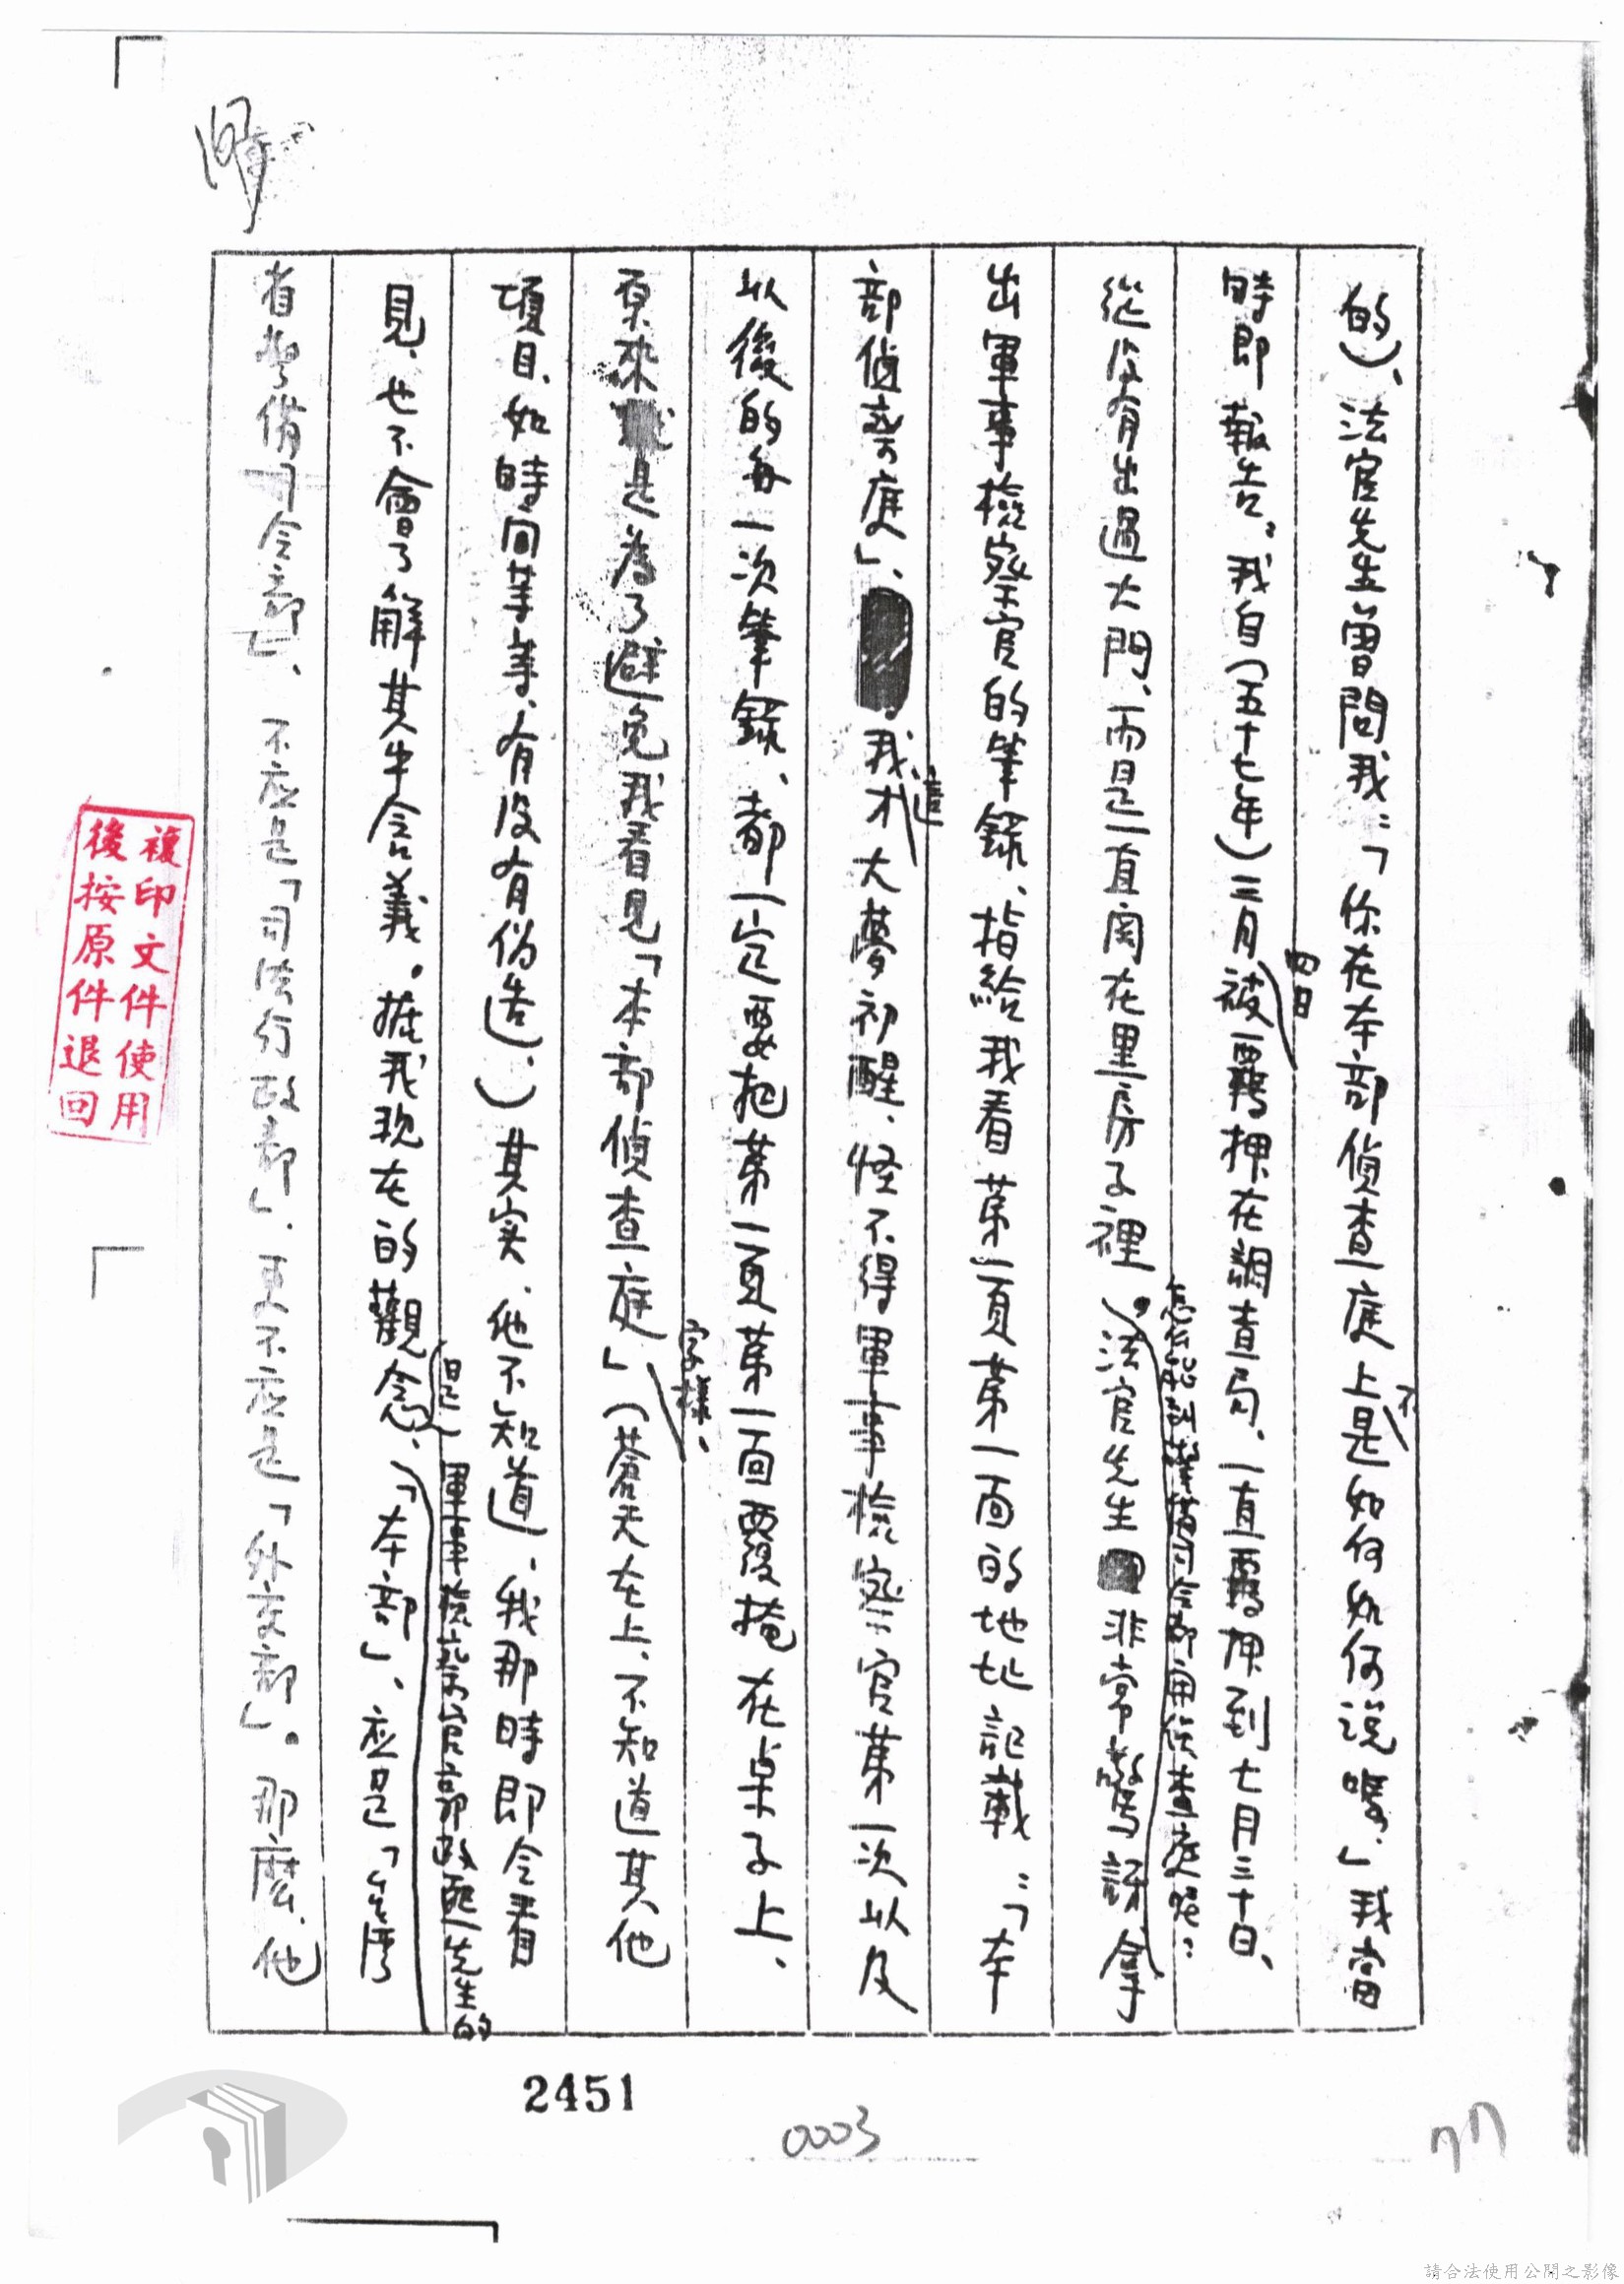 的)、法官先生曾問我:「你在本部偵查庭上不是如何如何說嗎、」我當
時即報告。我自(五十七年)三月四日被羈押在調查局、一直羈押到七月三十日、
從沒有出過大門、而是一直関在黑房子裡。
怎么能到警備司令部軍偵查庭呢:
法官先生非常驚訝拿
出軍事檢察官的筆録、指給我看第一頁第一面的地址記載:「本
部偵查庭」、我這才大夢初醒、怪不得軍事檢察官第一次以及
以後的每一次筆録、都一定要把第一頁第一面覆掩在桌子上、
原來是為了避免我看見「本部偵查庭」字樣、(蒼天在上、不知道其他
項目、如時间等等、有没有偽造、)其实、他不知道、我那時即令看
見、也不會了解其中含義。據我現在的觀念、
軍事檢察官郭政熙先生的
「本部」、應是「台湾
省警備司令部」、不应是「司法行政部」、更不应是「外交部」。那麽、他
2451
0003
77
複印文件使用
後按原件退回
請合法使用公開之影像